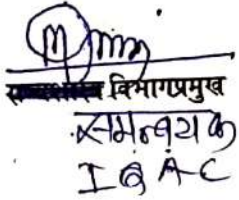 विभागप्रमुख
समन्वयक
IQAC